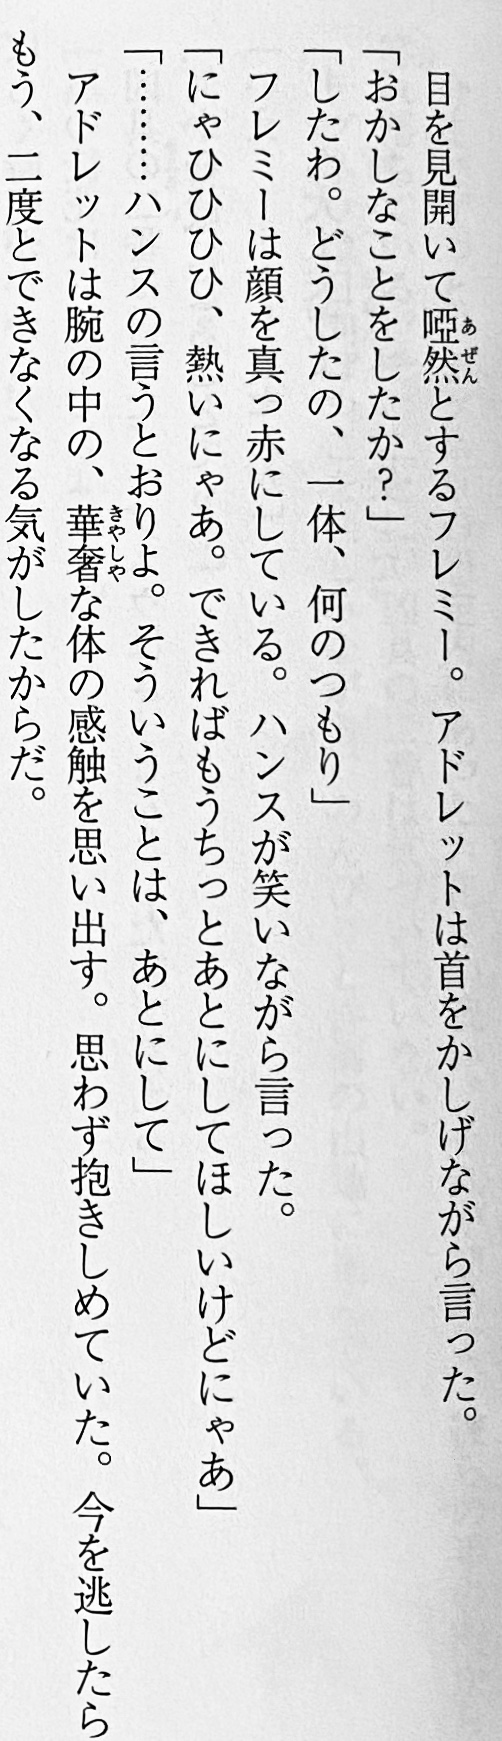 目を見開いて啞然とするフレミー。アドレットは首をかしげながら言った。
「おかしなことをしたか？」
「したわ。どうしたの、一体、何のつもり」
フレミーは顔を真っ赤にしている。ハンスが笑いながら言った。
「にゃひひひひ、熱いにゃあ。できればもうちっとあとにしてほしいけどにゃあ」
「………ハンスの言うとおりよ。そういうことは、あとにして」
アドレットは腕の中の、華奢な体の感触を思い出す。思わず抱きしめていた。今を逃したら
もう、二度とできなくなる気がしたからだ。